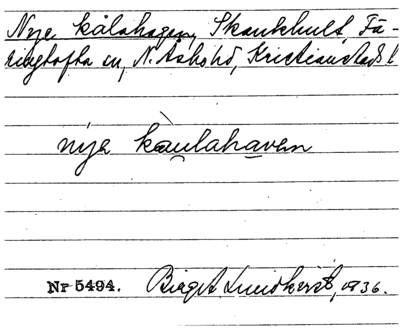 Nye kålahagen, Skankhult, Fä-
ringtofta sn, N. Åsbohd, Kristianstads l
nye kàulahavan
Nr 5494. Birgit Lundkvist, 1936.